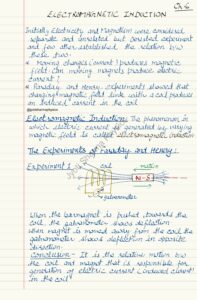 Ch-6
ELECTROMAGNETIC INDUCTION
Initially Electricity and Magnetism were considered
separate and unrelated but oersted experiment
and few other established the relation b/w
these two.
* Moving charges (current) produces magnetic
field. Can moving magnets produce electric
current?
* Faraday and Henry experiments showed that
changing magnetic field links with a coil produces
an induced current in the coil
Electromagnetic Induction: The phenomenon in
which electric current is generated by varying
magnetic field is called electromagnetic induction
The Experiments of Faraday and Henry:
Experiment 1
coil
motion
N S
galvanometer
When the bar magnet is pushed towards the
coil, the galvanometer shows deflection
when magnet is moved away from the coil the
galvanometer showed deflection in opposite
direction
Conclusion - It is the relative motion b/w
the coil and magnet that is responsible for
generation of electric current (induced current)
in the coil